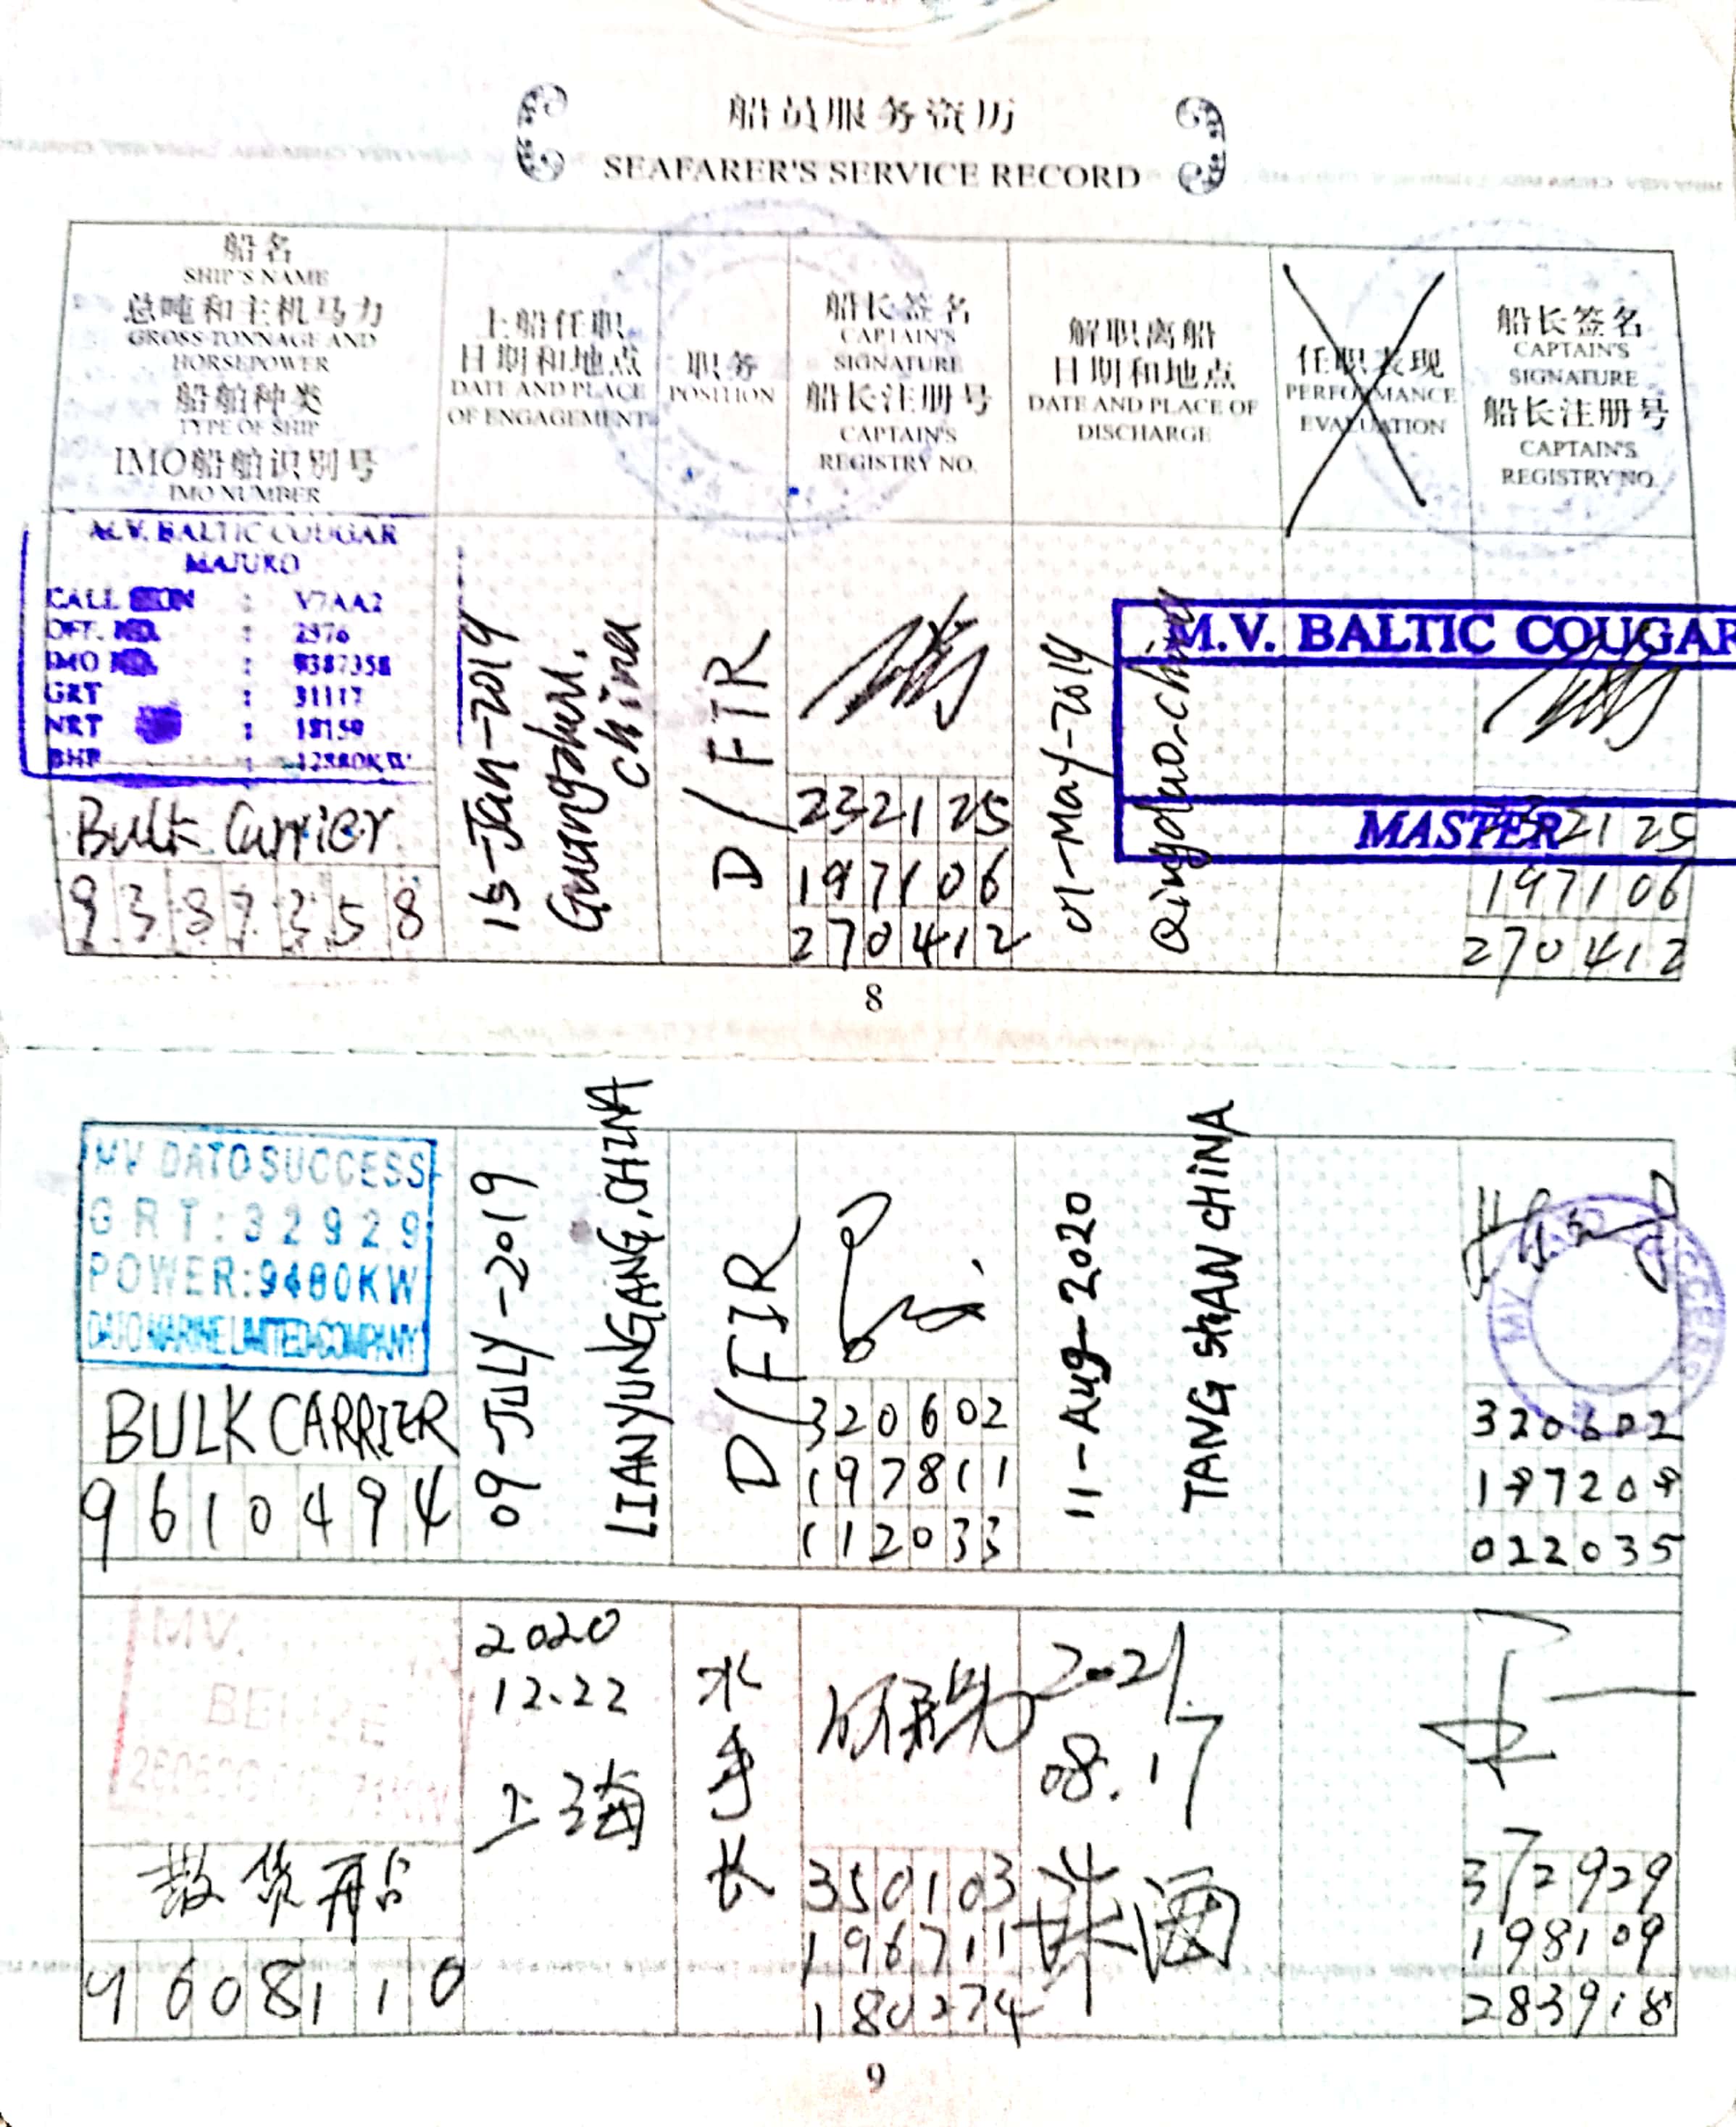 船员服务资历
SEAFARER'S SERVICE RECORD
船名
SHIP'S NAME
总吨和主机马力
GROSS TONNAGE AND
HORSEPOWER
船舶种类
TYPE OF SHIP
IMO船舶识别号
IMO NUMBER
上船任职
日期和地点
DATE AND PLACE
OF ENGAGEMENT
职务
POSITION
船长签名
CAPTAIN'S
SIGNATURE
船长注册号
CAPTAIN'S
REGISTRY NO.
解职离船
日期和地点
DATE AND PLACE OF
DISCHARGE
任职表现
PERFORMANCE
EVALUATION
船长签名
CAPTAIN'S
SIGNATURE
船长注册号
CAPTAIN'S
REGISTRY NO.
M.V. BALTIC COUGAR
MAJURO
CALL SIGN : V7AA2
OFF. NO. : 2976
IMO NO. : 9387358
GRT : 31117
NRT : 18159
BHP : 12880KW
Bulk Carrier
9387358
15-Jan-2019
Guangzhou.
China
D/FTR
232125
197106
270412
01-May-2019
Qingdao-china
M.V. BALTIC COUGAR
MASTER
232125
197106
270412
8
MV DATO SUCCESS
GRT:32929
POWER:9480KW
DATO MARINE LIMITED COMPANY
BULK CARRIER
9610494
09-JULY-2019
LIANYUNGANG,CHINA
D/FIR
320602
197811
112033
11-Aug-2020
TANG SHAN CHINA
MV
320602
197209
022035
MV.
BELIZE
散货船
9608110
2020
12.22
上海
水手长
350103
196711
180274
2021.
08.17
珠海
372929
198109
283918
9